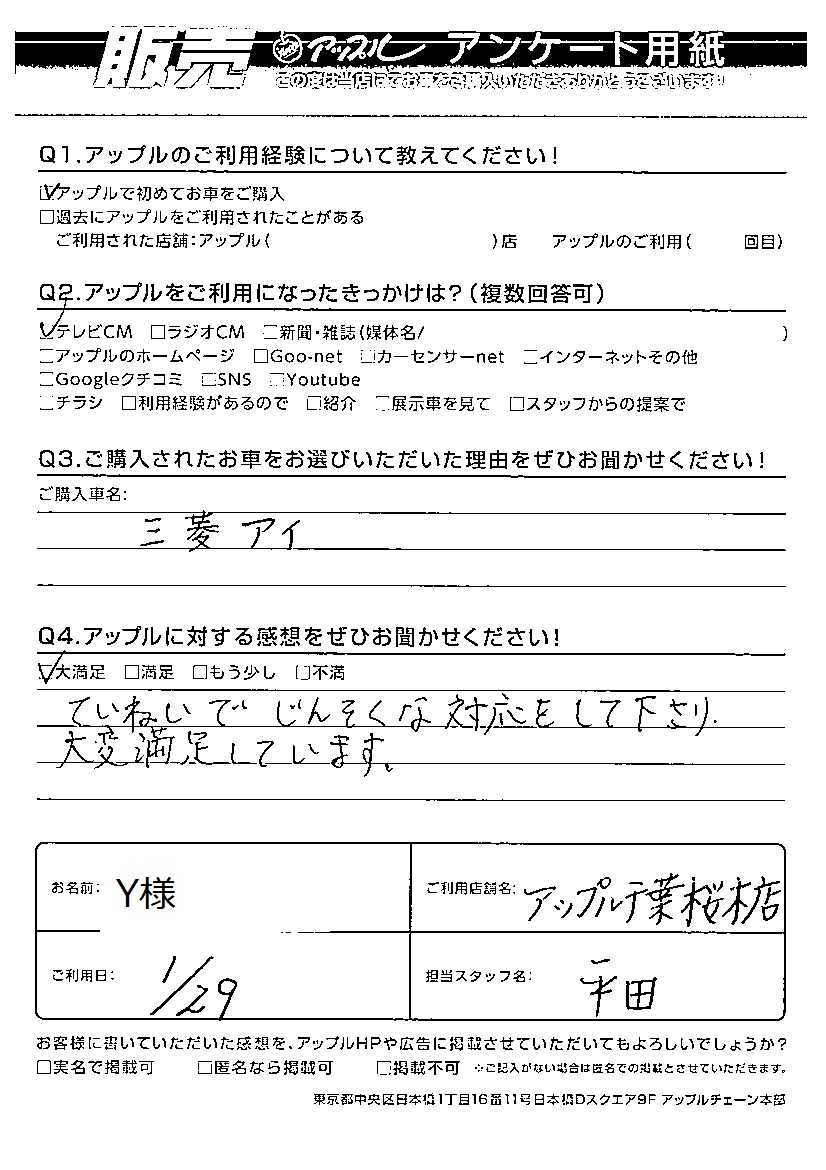 販売 アップル アンケート用紙
この度は当店にてお車をご購入いただきありがとうございます!
Q1.アップルのご利用経験について教えてください!
☑アップルで初めてお車をご購入
□過去にアップルをご利用されたことがある
ご利用された店舗:アップル( )店 アップルのご利用( 回目)
Q2.アップルをご利用になったきっかけは?(複数回答可)
☑テレビCM □ラジオCM □新聞・雑誌(媒体名/ )
□アップルのホームページ □Goo-net □カーセンサーnet □インターネットその他
□Googleクチコミ □SNS □Youtube
□チラシ □利用経験があるので □紹介 □展示車を見て □スタッフからの提案で
Q3.ご購入されたお車をお選びいただいた理由をぜひお聞かせください!
ご購入車名:
三菱 アイ
Q4.アップルに対する感想をぜひお聞かせください!
☑大満足 □満足 □もう少し □不満
ていねいで じんそくな対応をして下さり.
大変満足しています。
お名前: Y様 ご利用店舗名: アップル千葉桜木店
ご利用日: 1/29 担当スタッフ名: 平田
お客様に書いていただいた感想を、アップルHPや広告に掲載させていただいてもよろしいでしょうか?
□実名で掲載可 □匿名なら掲載可 □掲載不可 ※ご記入がない場合は匿名での掲載とさせていただきます。
東京都中央区日本橋1丁目16番11号日本橋Dスクエア9F アップルチェーン本部